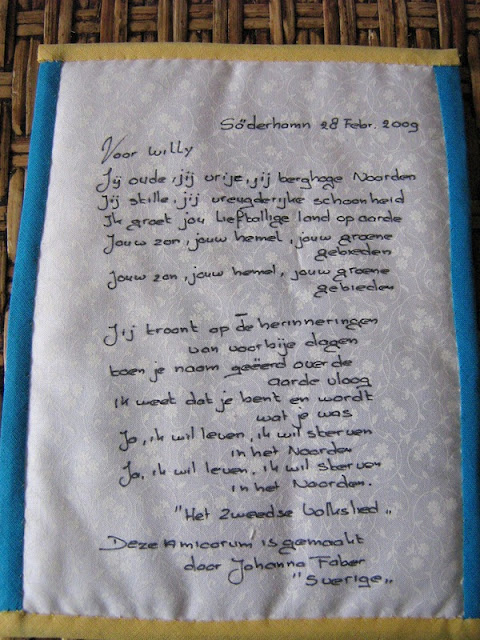 Söderhamn 28 Febr. 2009
Voor Willy
Jij oude, jij vrije, jij berghoge Noorden
Jij stille, jij vreugderijke schoonheid
Ik groet jou lieftallige land op aarde
Jouw zon, jouw hemel, jouw groene
gebieden
Jouw zon, jouw hemel, jouw groene
gebieden
Jij troont op de herinneringen
van voorbije dagen
toen je naam geëerd over de
aarde vloog
ik weet dat je bent en wordt
wat je was
Ja, ik wil leven, ik wil sterven
in het Noorden
Ja, ik wil leven, ik wil sterven
in het Noorden.
"Het Zweedse Volkslied„
Deze Amicorum is gemaakt
door Johanna Faber
"Sverige„